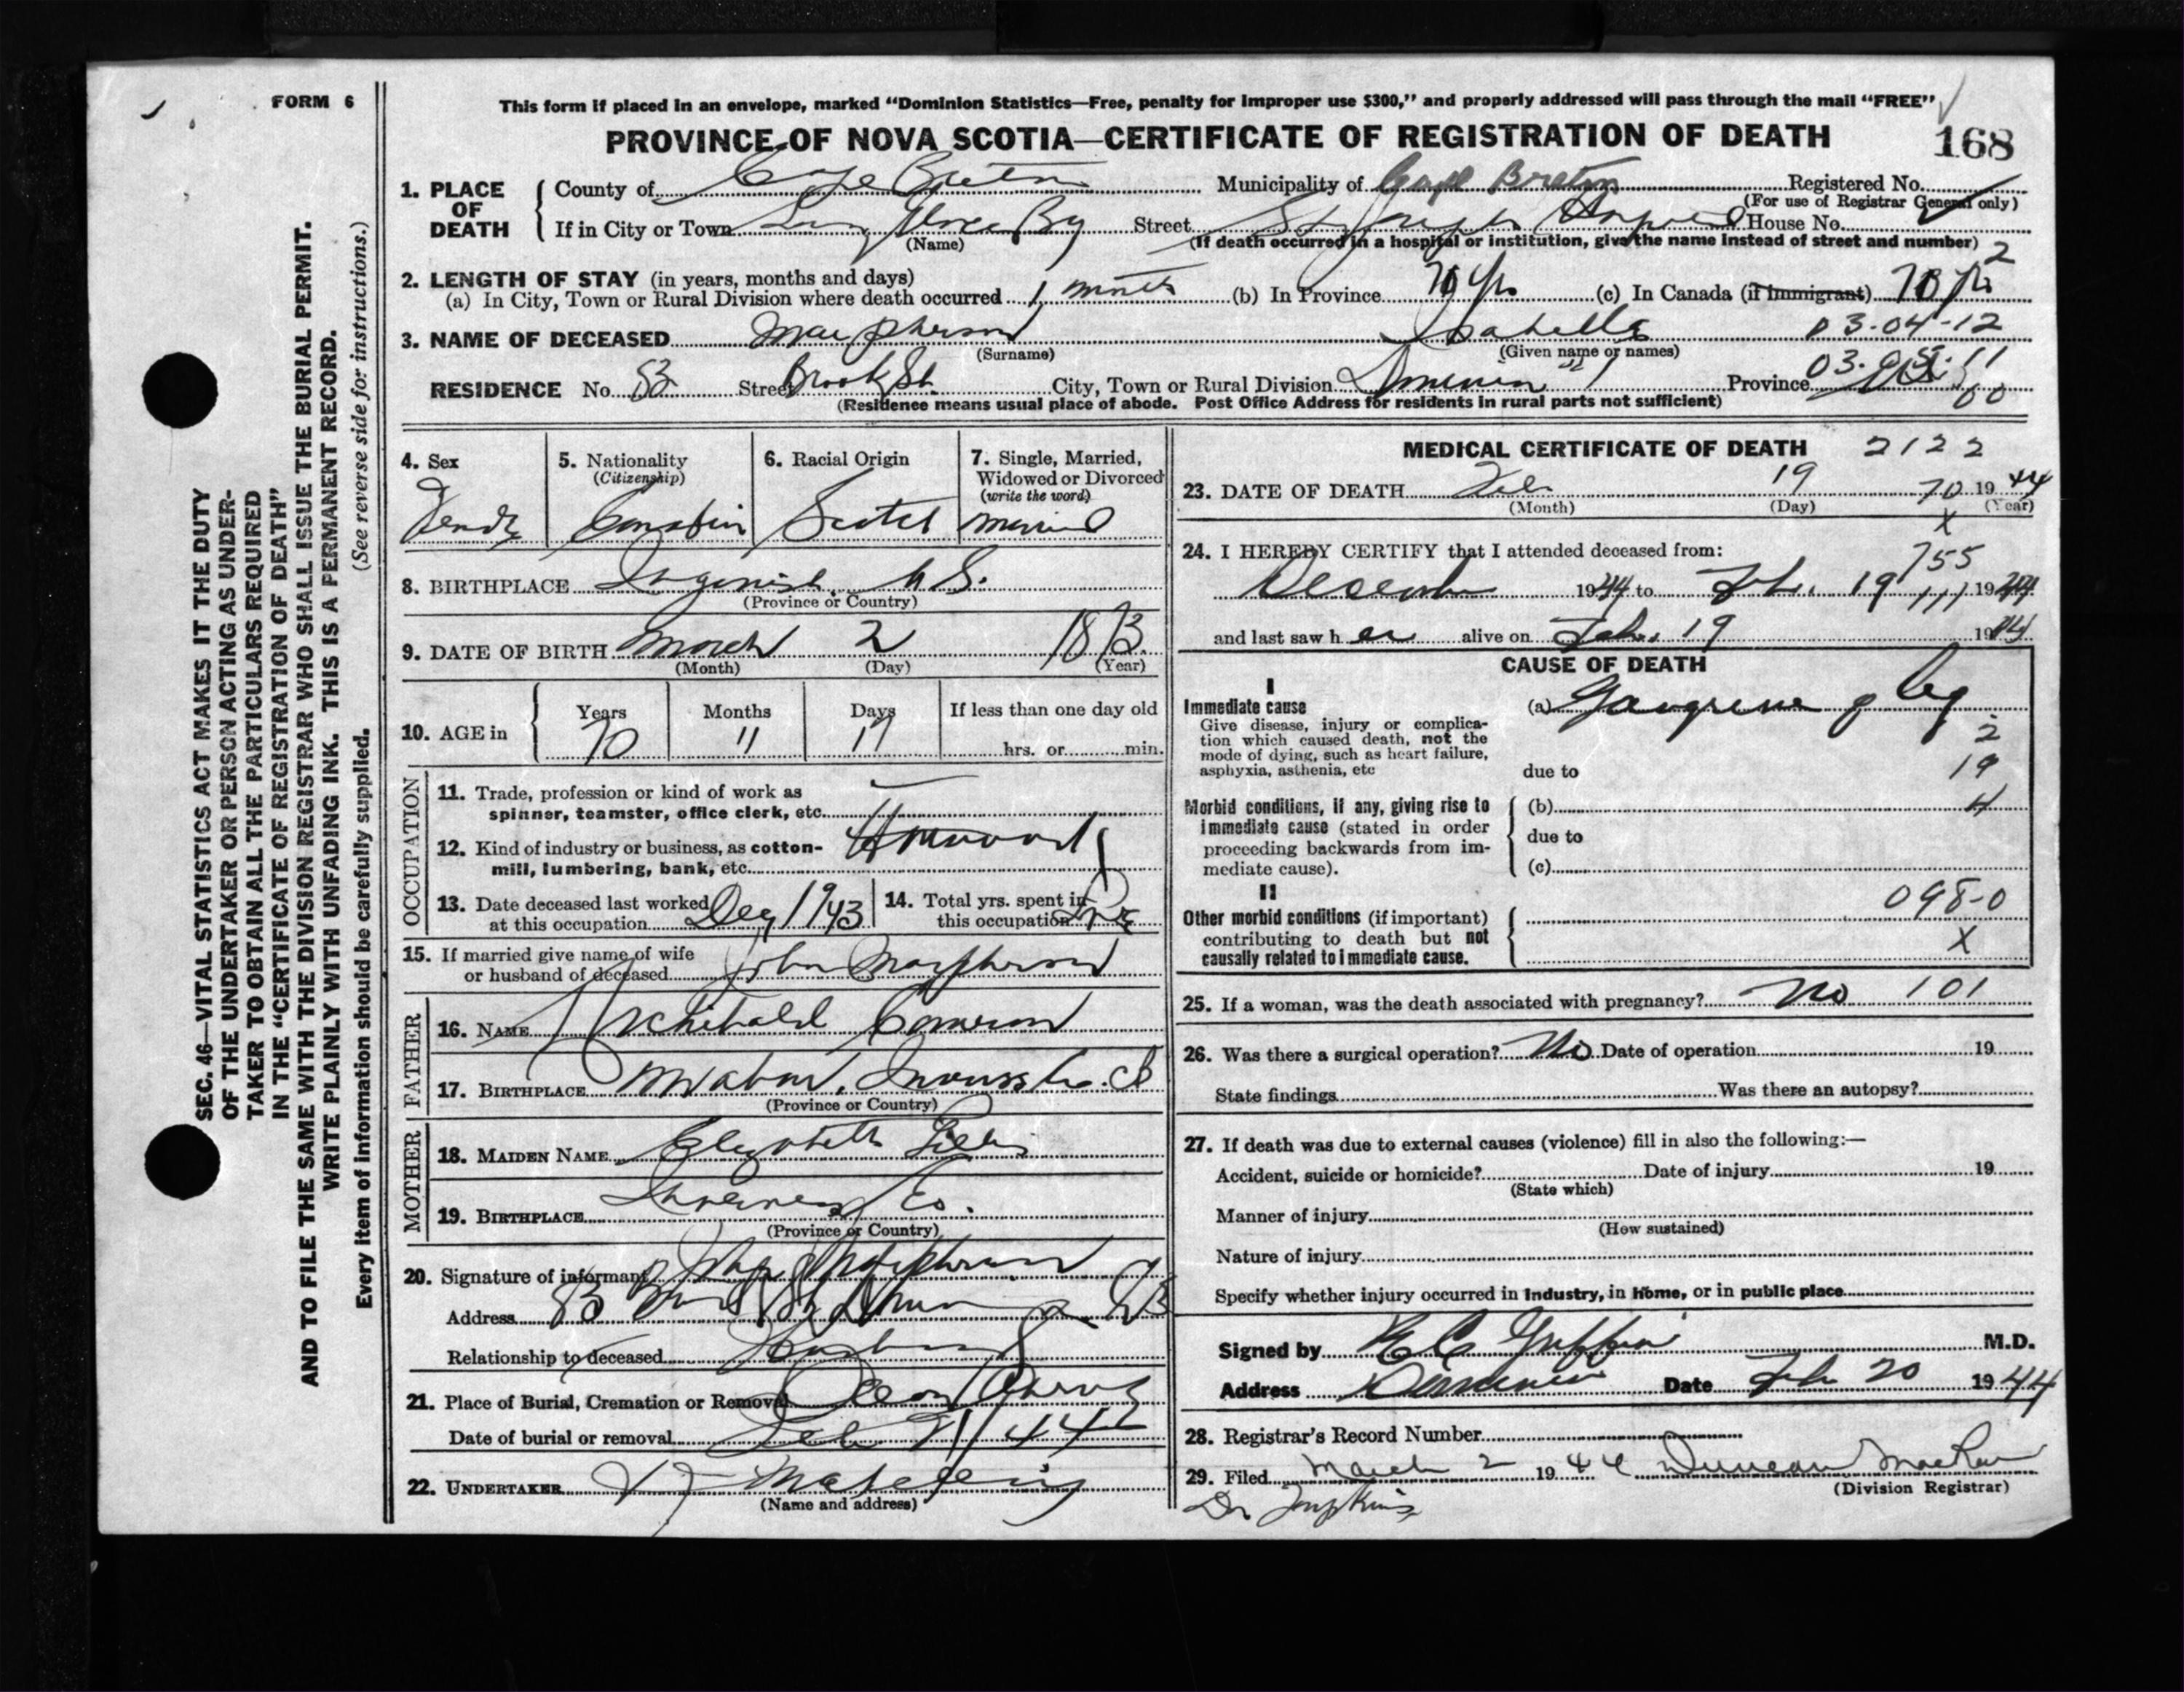 FORM 6
This form if placed in an envelope, marked “Dominion Statistics—Free, penalty for improper use $300,” and properly addressed will pass through the mail “FREE”
PROVINCE OF NOVA SCOTIA—CERTIFICATE OF REGISTRATION OF DEATH
168
1. PLACE OF DEATH
County of Cape Breton Municipality of Cape Breton Registered No.
(For use of Registrar General only)
If in City or Town Glace Bay Street St Joseph's Hospital House No.
(Name) (If death occurred in a hospital or institution, give the name instead of street and number) 2
2. LENGTH OF STAY (in years, months and days)
(a) In City, Town or Rural Division where death occurred 1 month (b) In Province 70 Yrs (c) In Canada (if immigrant) 70 Yrs 2
3. NAME OF DECEASED MacPherson Isabella 03-04-12
(Surname) (Given name or names)
RESIDENCE No. 83 Street Brook St. City, Town or Rural Division Dominion Province 03. 11
60
(Residence means usual place of abode. Post Office Address for residents in rural parts not sufficient)
4. Sex Female
5. Nationality (Citizenship) Canadian
6. Racial Origin Scotch
7. Single, Married, Widowed or Divorced (write the word) Married
8. BIRTHPLACE N.S.
(Province or Country)
9. DATE OF BIRTH March 2 1873
(Month) (Day) (Year)
10. AGE in Years 70 Months 11 Days 17 If less than one day old
hrs. or min.
OCCUPATION
11. Trade, profession or kind of work as
spinner, teamster, office clerk, etc.
12. Kind of industry or business, as cotton-
mill, lumbering, bank, etc.
13. Date deceased last worked
at this occupation Dec 1943
14. Total yrs. spent in
this occupation
15. If married give name of wife
or husband of deceased John MacPherson
FATHER
16. NAME Archibald Cameron
17. BIRTHPLACE Mabou, Inverness Co. CB
(Province or Country)
MOTHER
18. MAIDEN NAME Elizabeth Gillis
19. BIRTHPLACE Inverness Co.
(Province or Country)
20. Signature of informant John MacPherson
Address 83 Brook St Dominion CB
Relationship to deceased Husband
21. Place of Burial, Cremation or Removal
Date of burial or removal Feb 21/44
22. UNDERTAKER
(Name and address)
MEDICAL CERTIFICATE OF DEATH 2122
23. DATE OF DEATH Feb 19 70 1944
(Month) (Day) (Year)
X
24. I HEREBY CERTIFY that I attended deceased from:
755
December 1944 to Feb. 19 111 1944
and last saw her alive on Feb. 19 1944
CAUSE OF DEATH
I
Immediate cause (a) Gangrene of leg
Give disease, injury or complica-
tion which caused death, not the
mode of dying, such as heart failure,
asphyxia, asthenia, etc due to
2
19
4
Morbid conditions, if any, giving rise to
immediate cause (stated in order
proceeding backwards from im-
mediate cause).
(b)
due to
(c)
II
Other morbid conditions (if important)
contributing to death but not
causally related to immediate cause.
098-0
X
25. If a woman, was the death associated with pregnancy? No 101
26. Was there a surgical operation? No Date of operation 19
State findings Was there an autopsy?
27. If death was due to external causes (violence) fill in also the following:—
Accident, suicide or homicide? Date of injury 19
(State which)
Manner of injury
(How sustained)
Nature of injury
Specify whether injury occurred in industry, in home, or in public place
Signed by E C Griffin M.D.
Address Dominion Date Feb 20 1944
28. Registrar's Record Number
29. Filed March 2 1944 Duncan MacRae
(Division Registrar)
Dr Tompkins
SEC. 46—VITAL STATISTICS ACT MAKES IT THE DUTY
OF THE UNDERTAKER OR PERSON ACTING AS UNDER-
TAKER TO OBTAIN ALL THE PARTICULARS REQUIRED
IN THE “CERTIFICATE OF REGISTRATION OF DEATH”
AND TO FILE THE SAME WITH THE DIVISION REGISTRAR WHO SHALL ISSUE THE BURIAL PERMIT.
WRITE PLAINLY WITH UNFADING INK. THIS IS A PERMANENT RECORD.
Every item of information should be carefully supplied. (See reverse side for instructions.)